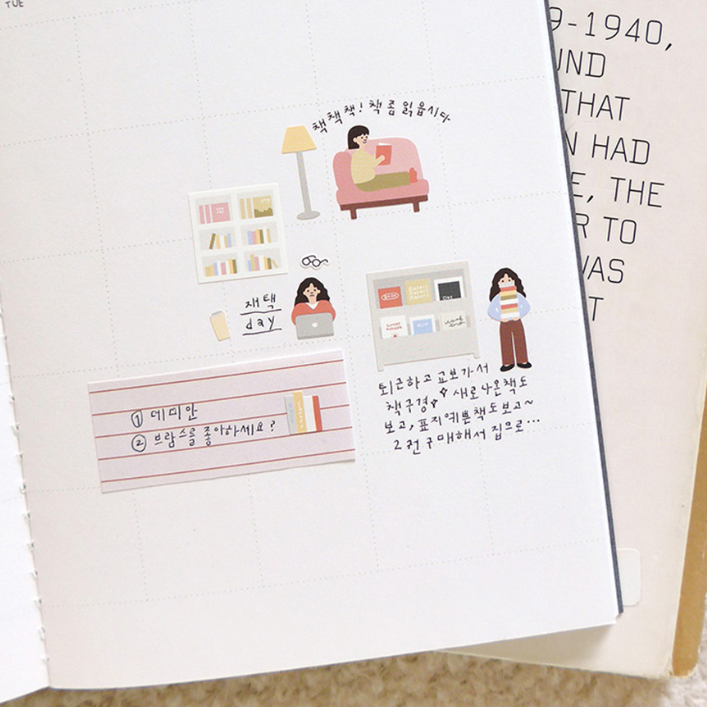 TUE
책책책! 책 좀 읽읍시다
재택
day
퇴근하고 교보가서
책구경 새로나온책도
보고, 표지 예쁜책도보고~
2권 구매해서 집으로...
① 데미안
② 브람스를 좋아하세요?
9-1940,
UND
THAT
N HAD
E, THE
R TO
WAS
T